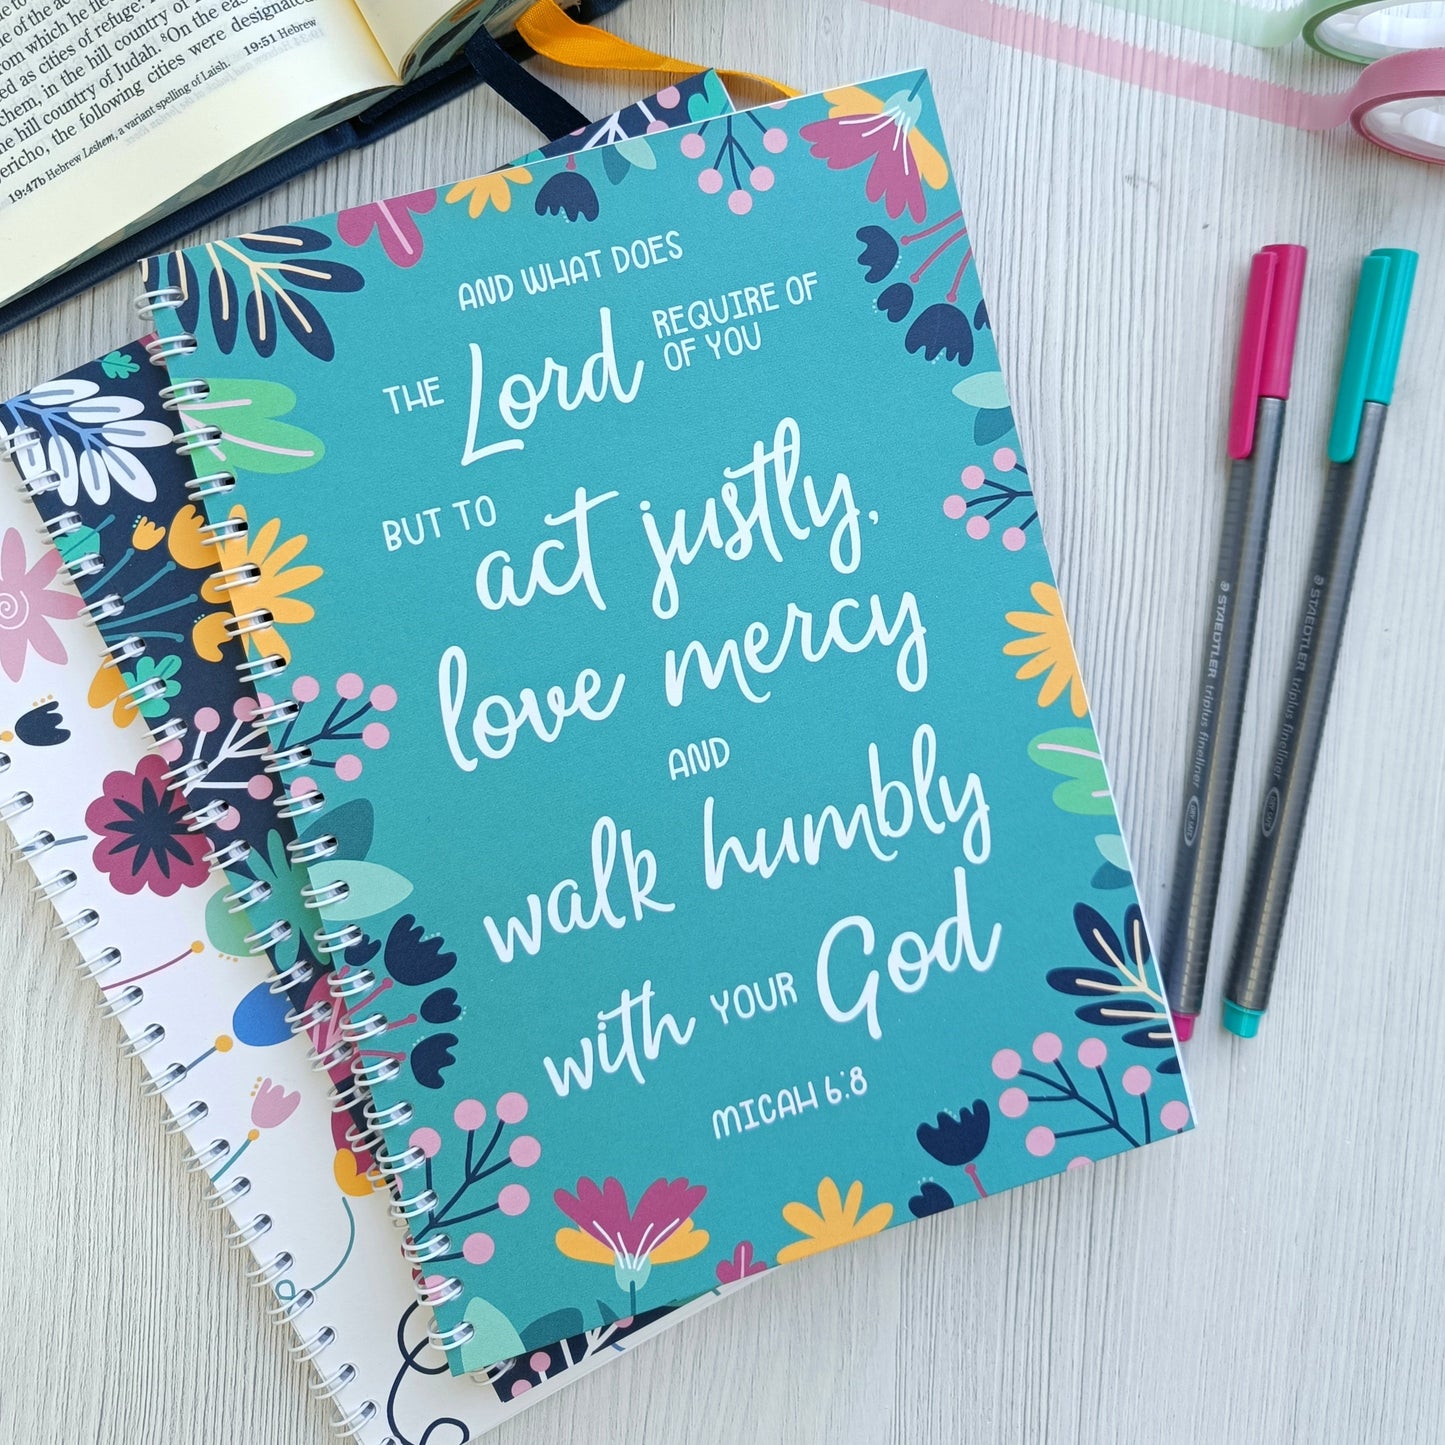 of the ac
from which he fle
ed as cities of refuge:
chem, in the hill country o
e hill country of Judah. ⁸On the eas
ericho, the following cities were designated
19:47b Hebrew Leshem, a variant spelling of Laish. 19:51 Hebrew
AND WHAT DOES
THE Lord REQUIRE OF
OF YOU
BUT TO act justly,
love mercy
AND
walk humbly
with YOUR God
MICAH 6:8
STAEDTLER triplus fineliner DRY SAFE
STAEDTLER triplus fineliner DRY SAFE